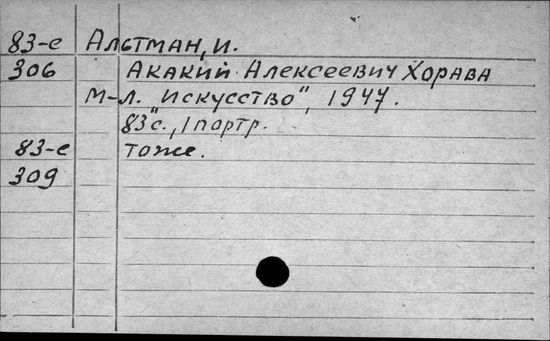 83-е Альтман, И.
306 Акакий Алексеевич Хорава
М-Л. "Искусство", 1947.
83 с., 1 портр.
83-е Тоже.
309